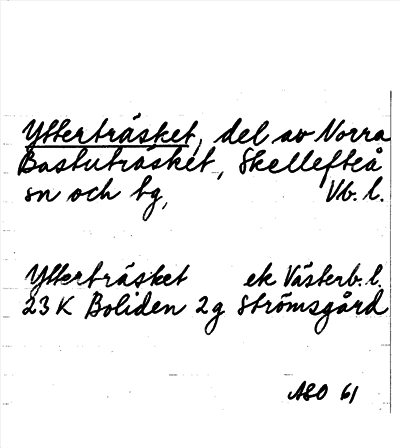 Ytterträsket, del av Norra
Bastuträsket, Skellefteå
sn och tg, Vb. l.
Ytterträsket ek Västerb. l.
23 K Boliden 2g Strömsgård
ASO 61